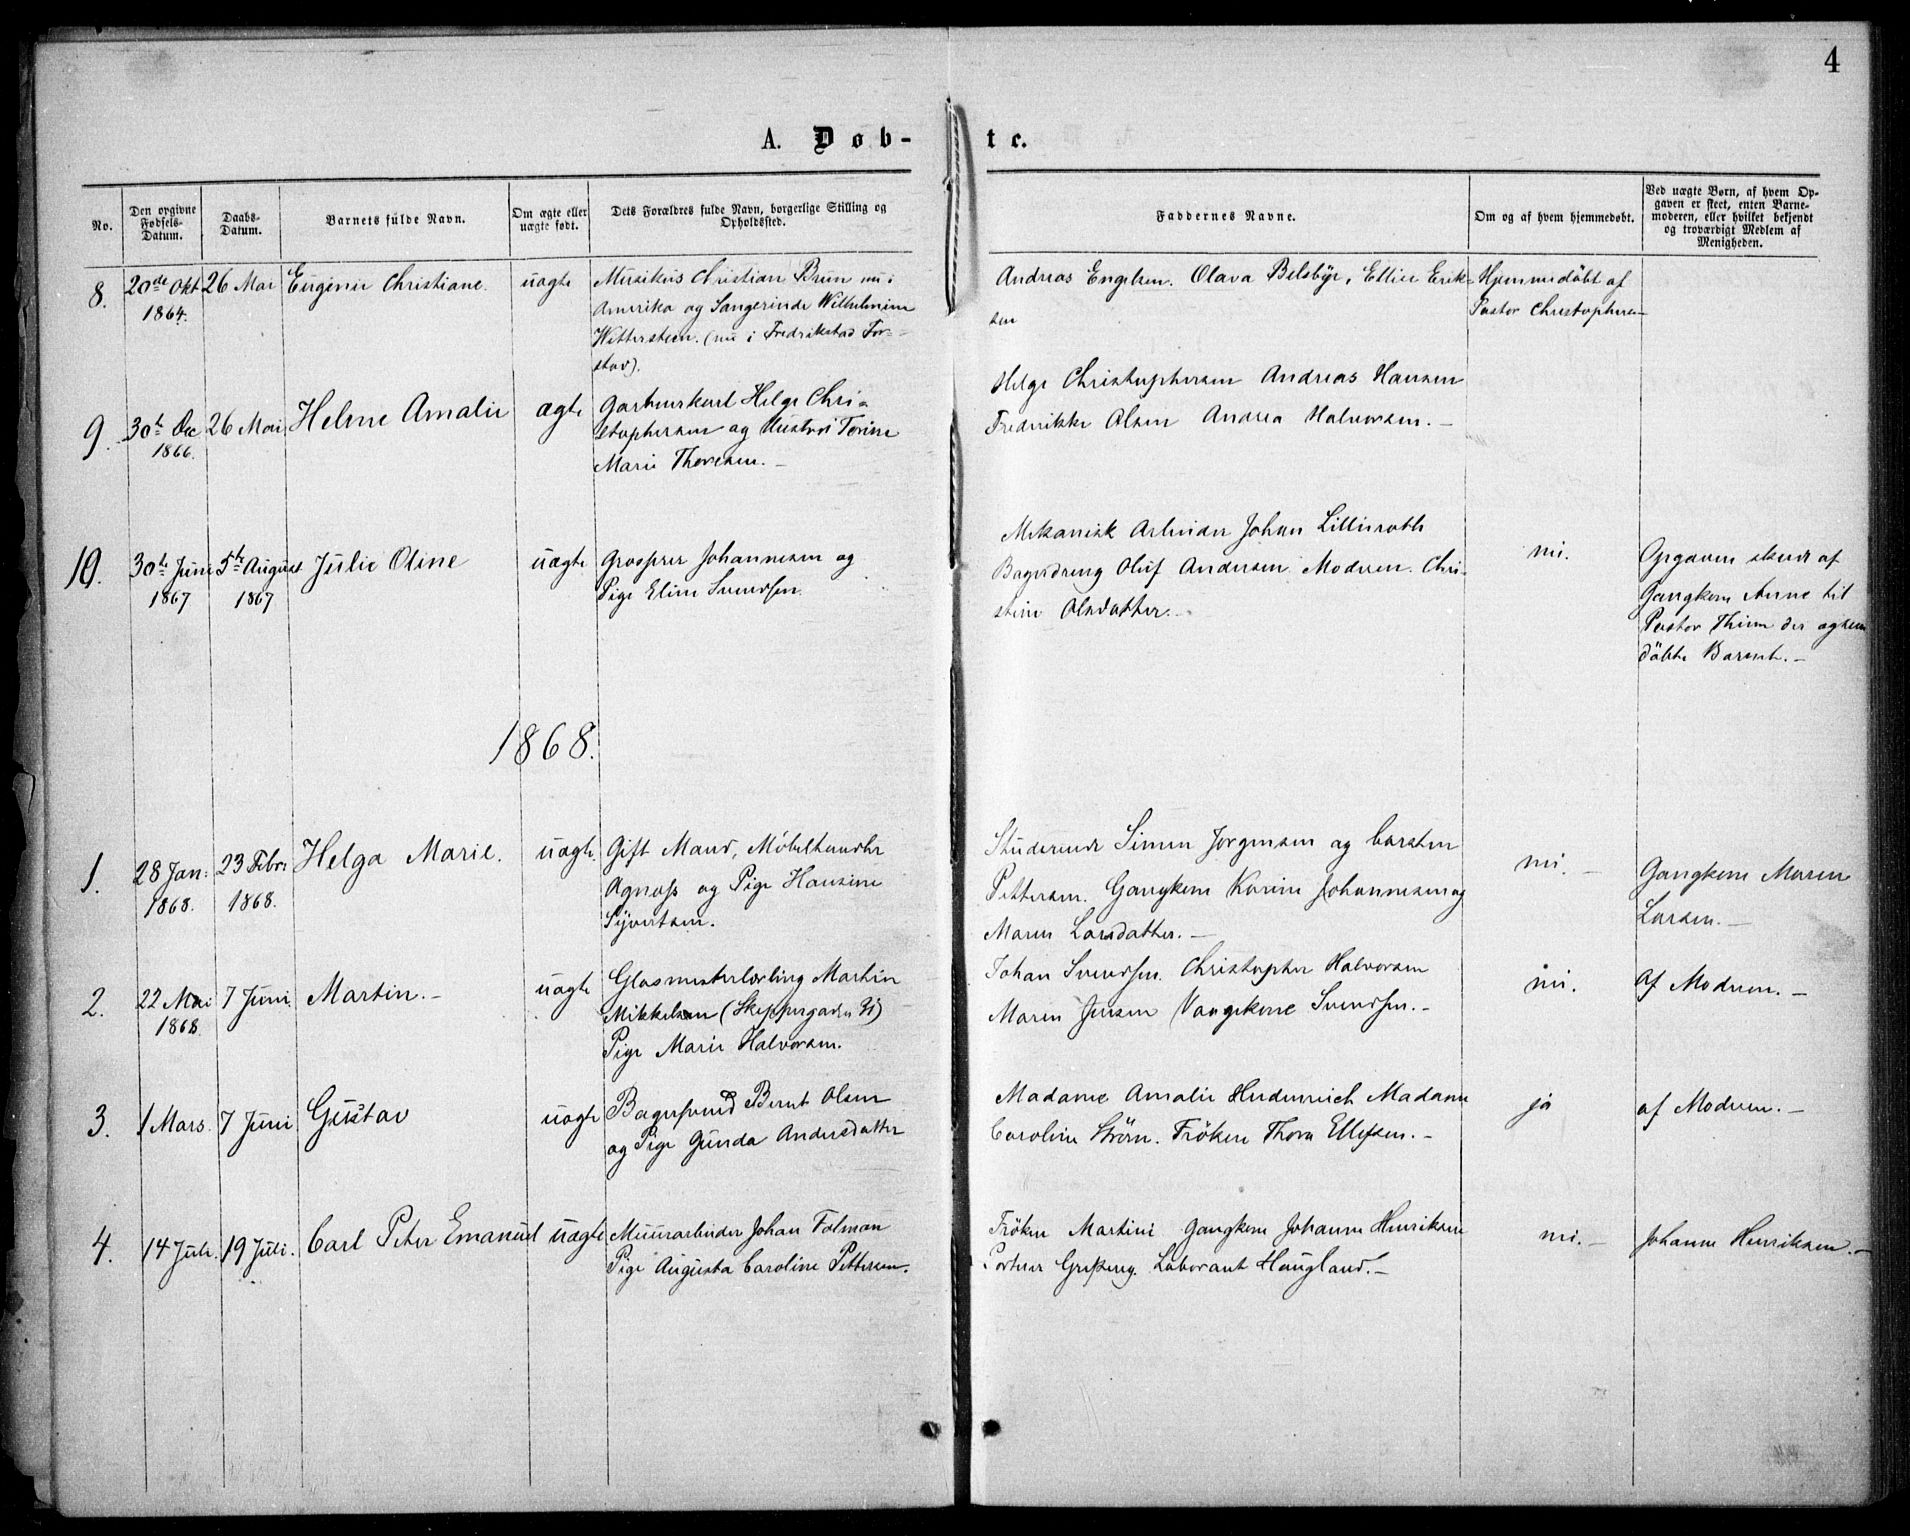 4
A. Døb-
te.
No.
Den opgivne Fødsels-Datum.
Daabs-Datum.
Barnets fulde Navn.
Om ægte eller uægte født.
Dets Forældres fulde Navn, borgerlige Stilling og Opholdssted.
Faddernes Navne.
Om og af hvem hjemmedøbt.
Ved uægte Børn, af hvem Op-
gaven er skeet, enten Barne-
moderen, eller hvilket bekjendt
og troværdigt Medlem af
Menigheden.
8. 20de Okt 1864. 26 Mai Eugenie Christiane. uægte
Musikus Christian Brun nu i
Amerika og Sangerinde Wilhelmine
Wittersteen. (nu i Fredrikstad For-
stad).
Andreas Engelsen. Olava Belsbye, Ellise Erik-
sen
Hjemmedöbt af
Pastor Christophersen
9. 30te Dec 1866. 26 Mai Helene Amalie ægte
Garbeerkarl Helge Chri-
stophersen og Hustru Torine
Marie Thoresen.
Helge Christophersen Andreas Hansen
Frederikke Olsen Andrea Halvorsen.
10. 30te Juni 1867 5te August 1867 Julie Oline uægte
Grosserer Johannesen og
Pige Eline Svendsen.
Mekanisk Arbeider Johan Lilliroth
Bagerdreng Oluf Andersen Moderen. Chri-
stine Olsdatter.
nei.
Opgaven skeede af
Gangkone Anne til
Pastor Thiem der
döbte Barnet.
1868.
1. 28 Jan: 1868. 23 Febr: 1868. Helga Marie. uægte
Gift Mand, Møbelhandler
Agnass og Pige Hansine
Syvertsen.
Studerende Simen Jørgensen og Carsten
Pettersen. Gangkone Karine Johannesen og
Maren Larsdatter.
nei.
Gangkone Maren
Larsen.
2. 22 Mai 1868. 7 Juni. Martin. uægte
Glasmesterlærling Martin
Mikkelsen (Skippergaden 21)
Pige Marie Halvorsen.
Johan Svendsen. Christopher Halvorsen
Maren Jensen Vaagekone Svendsen.
nei.
Af Moderen.
3. 1 Mars. 7 Juni Gustav uægte
Bagersvend Bernt Olsen
og Pige Gunda Andersdatter
Madame Amalie Hedenreich Madame
Caroline Strøm. Frøken Thora Ellefsen.
ja
af Moderen.
4. 14 Juli. 19 Juli. Carl Peter Emanuel uægte
Muurarbeider Johan Falman
Pige Augusta Caroline Pettersen.
Frøken Martini Gangkone Johanne Henriksen
Portner Laborant Haugland.
nei.
Johanne Henriksen.